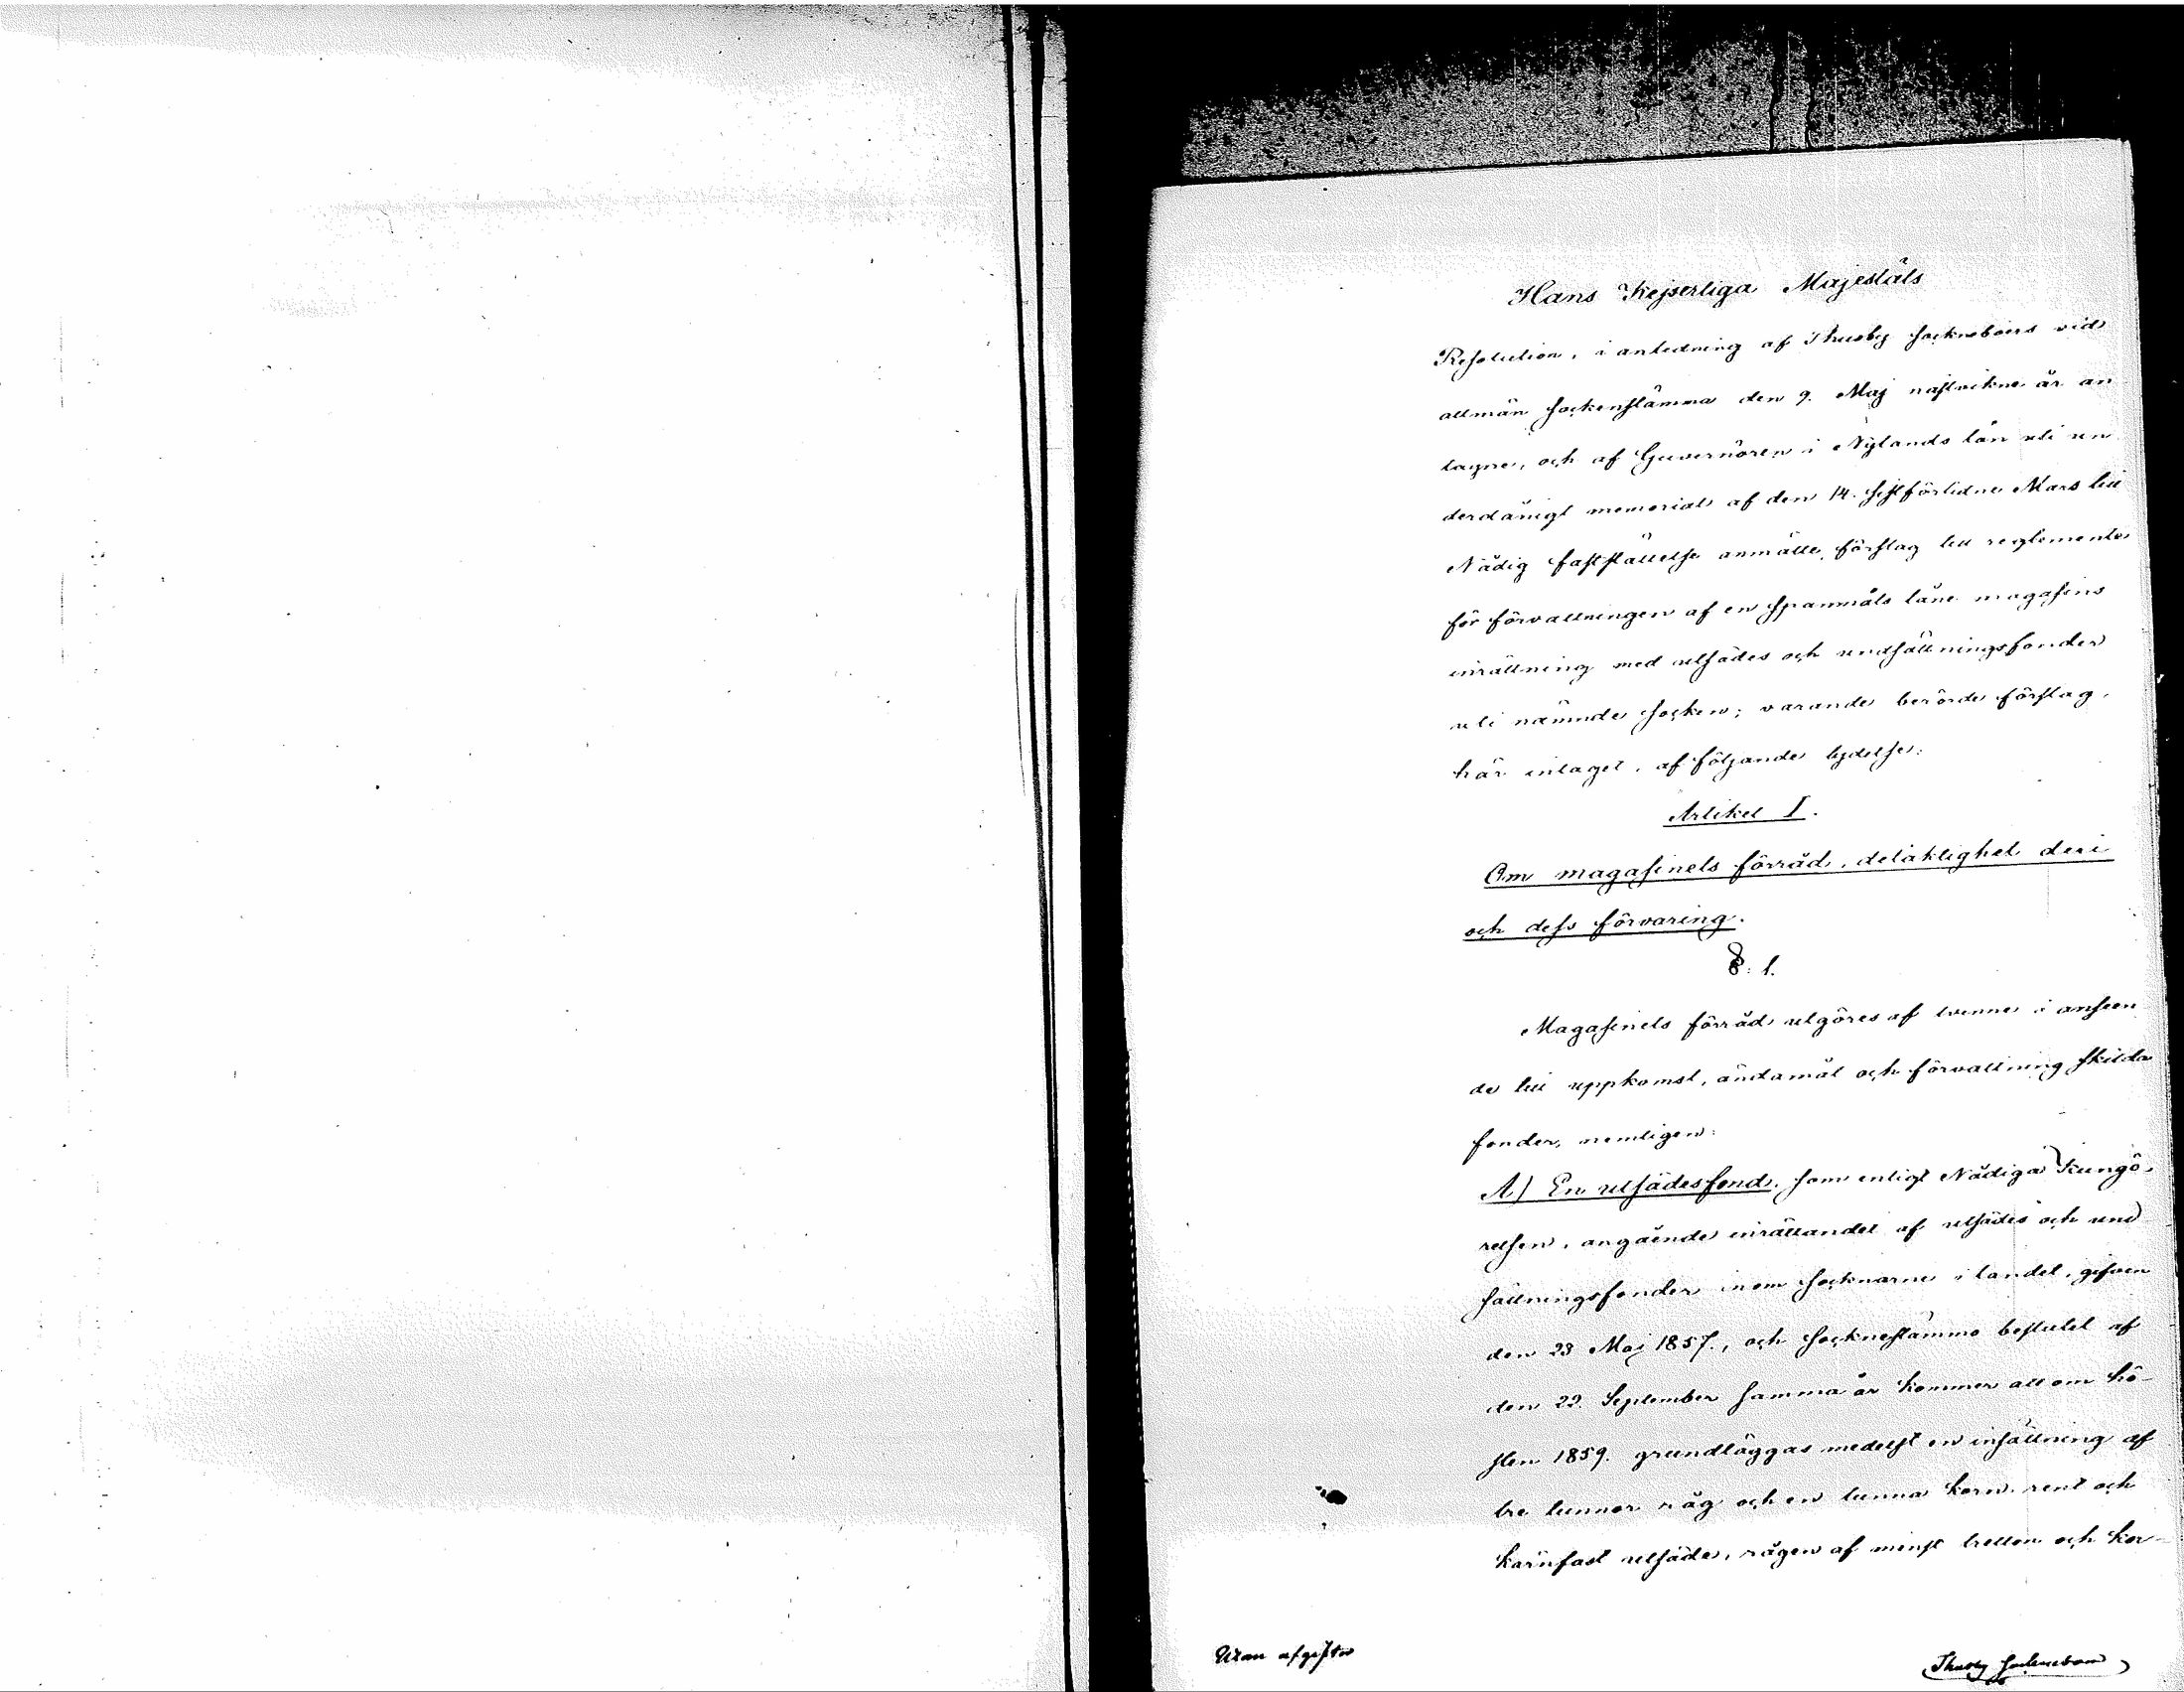 Hans Kejserliga Majestäts
Resolution, i anledning af Thusby sockneboers vid
allmän sockenstämma den 9. Maj nästvikne år an
tagne, och af Guvernören i Nylands län uti un
derdånigt memorial af den 14. sistförlidne Mars till
Nådig fastställelse anmälte, förslag till reglemente
för förvaltningen af en spannmåls låne magasins
inrättning med utsädes och undsättningsfonder
uti nämnde socken; varande berörde förslag,
här intaget, af följande lydelse:
Artikel I.
Om magasinets förråd, delaktighet deri
och dess förvaring.
§. 1.
Magasinets förråd utgöres af tvenne i anseen
de till uppkomst, ändamål och förvaltning skilda
fonder, nemligen:
A) En utsädesfond, som enligt Nådiga Kungö-
relsen, angående inrättandet af utsädes och und
sättningsfonder inom socknarne i landet, gifven
den 23 Maj 1857., och socknestämmo beslutet af
den 22. September samma år kommer att om hö-
sten 1859. grundläggas medelst en insättning af
tre tunnor råg och en tunna korn, rent och
kärnfast utsäde, rågen af minst tretton och kor-
Utan afgifter
Thusby sockneboer